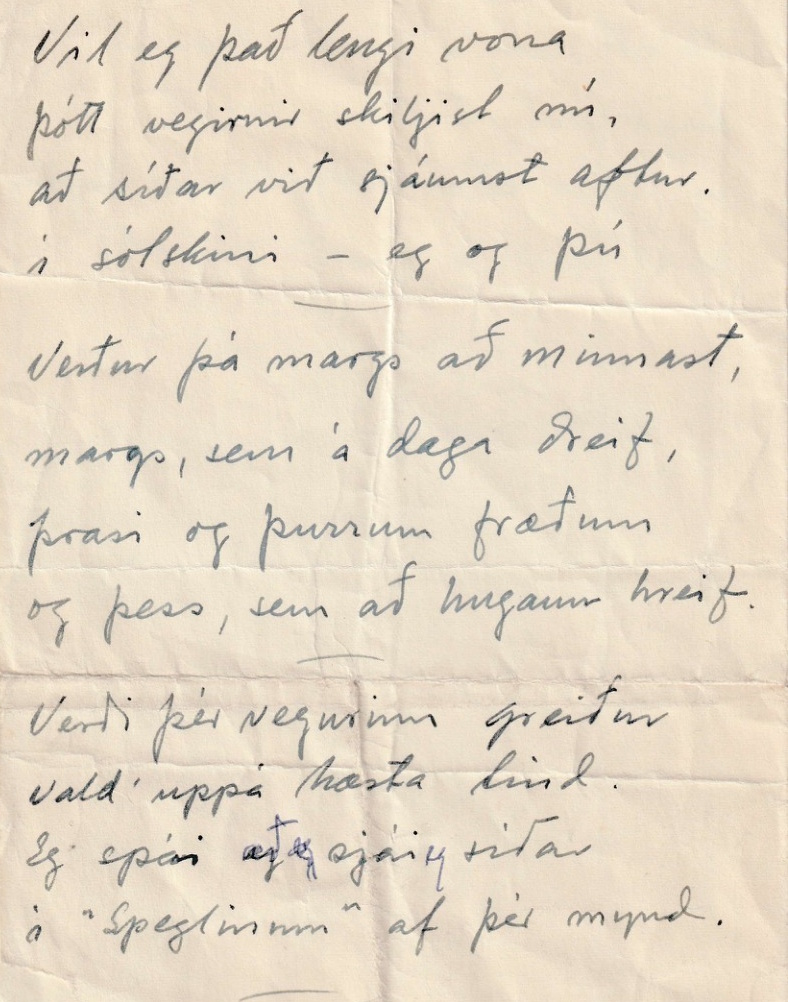 Vil eg það lengi vona
þótt vegirnir skiljist nú,
að síðar við sjáumst aftur.
í sólskini – eg og þú
Verður þá margs að minnast,
margs, sem á daga dreif,
þrasi og þurrum fræðum
og þess, sem að hugann hreif.
Verði þér vegurinn greiður
vald' uppá hæsta tind.
Eg spái að eg sjái síðar
í "Speglinum" af þér mynd.